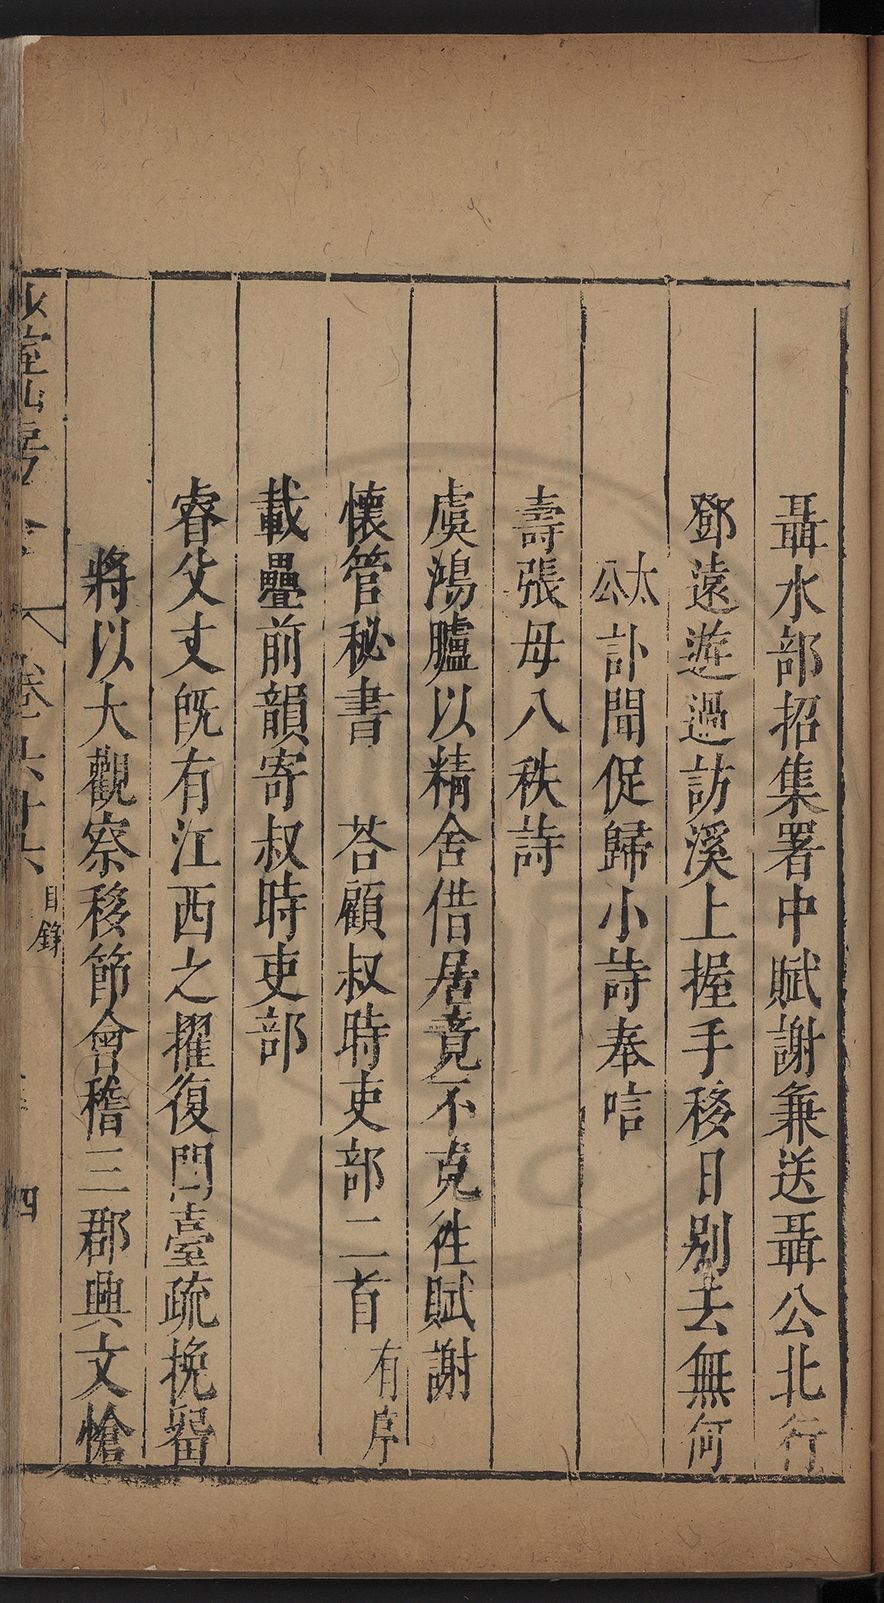 聶水部招集署中賦謝兼送聶公北行
鄧遠遊過訪溪上握手移日別去無何
太公訃聞促歸小詩奉唁
壽張母八秩詩
虞鴻臚以精舍借居竟不克徃賦謝
懷管秘書　荅顧叔時吏部二首有序
載疊前韻寄叔時吏部
睿父丈旣有江西之擢復閩臺疏挽留
將以大觀察移節會稽三郡興文愴
室山房
卷六十六 目錄
四